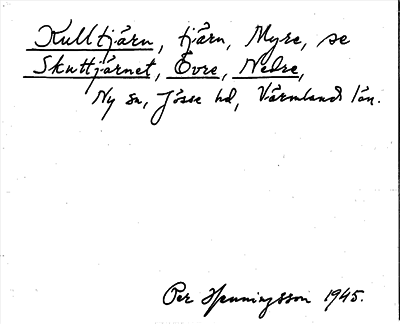 Kulltjärn, tjärn, Myre, se
Skuttjärnet, Övre, Nedre,
Ny sn, Jösse hd, Värmlands län.
Per Henningsson 1945.